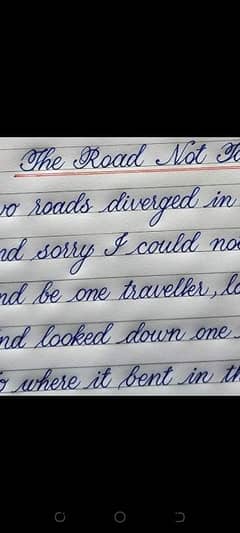 The Road Not Ta
wo roads diverged in
nd sorry I could not
nd be one traveller, lo
nd looked down one
o where it bent in th